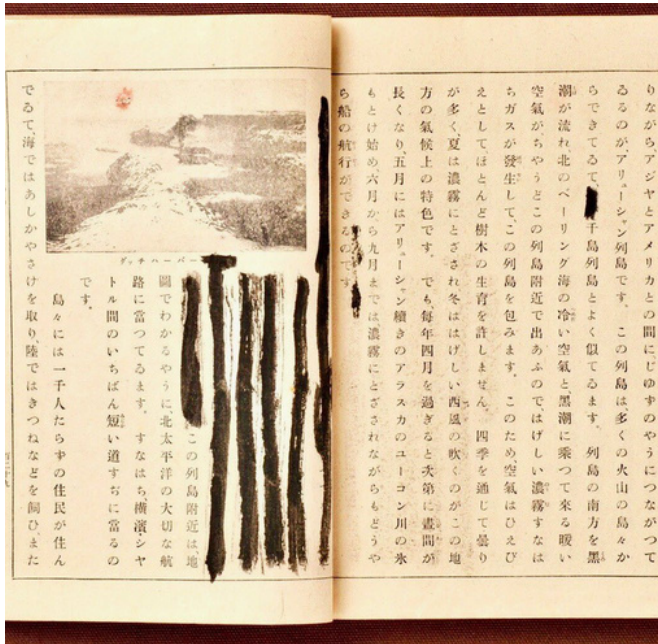 りながら、アジヤとアメリカとの間に、じゆずのやうにつながつて
ゐるのが、アリューシャン列島です。この列島は、多くの火山の島々か
らできてゐて、千島列島とよく似てゐます。列島の南方を黒
潮が流れ、北のベーリング海の冷い空氣と黒潮に乘つて來る暖い
空氣が、ちやうどこの列島附近で出あふので、はげしい濃霧すなは
ちガスが發生して、この列島を包みます。このため空氣はひえび
えとして、ほとんど樹木の生育を許しません。四季を通じて曇り
が多く、夏は濃霧にとざされ、冬ははげしい西風の吹くのがこの地
方の氣候上の特色です。でも、毎年四月を過ぎると次第に晝間が
長くなり、五月にはアリューシャン續きのアラスカのユーコン川の氷
もとけ始め、六月から九月までは、濃霧にとざされながらもどうや
ら船の航行ができるのです。
ダッチハーバー
この列島附近は、地
圖でわかるやうに、北太平洋の大切な航
路に當つてゐます。すなはち、横濱シヤ
トル間のいちばん短い道すぢに當るの
です。
島々には一千人たらずの住民が住ん
でゐて、海ではあしかやさけを取り、陸ではきつねなどを飼ひ、また